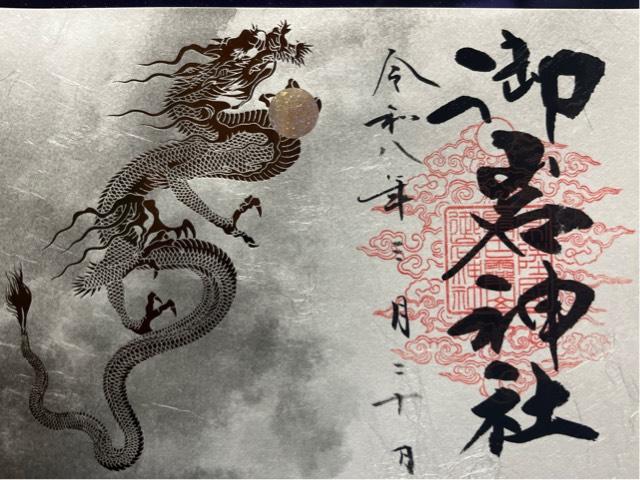 御寿神社
令和八年三月二十日